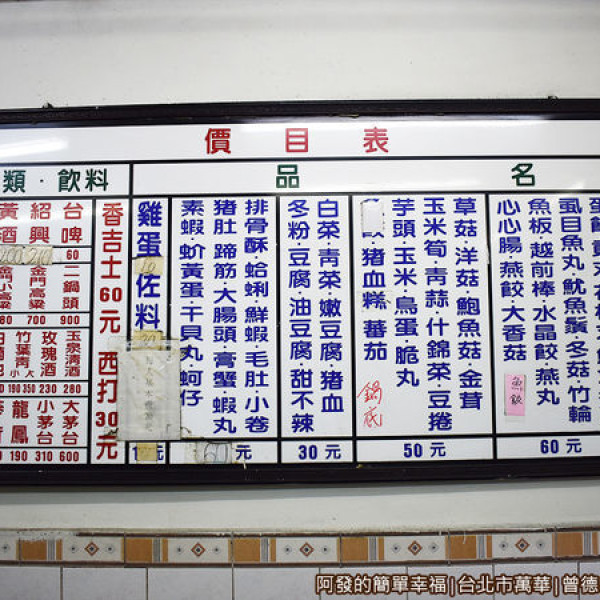 價目表
品名
類·飲料
蛋餃·貢丸·花枝
虱目魚丸·魷魚鬚·冬菇·竹輪
魚板·越前棒·水晶餃·燕丸
心心腸·燕餃·大香菇
魚餃
60元
草菇·洋菇·鮑魚菇·金茸
玉米筍·青蒜·什錦菜·豆捲
芋頭·玉米·鳥蛋·脆丸
豬血糕·蕃茄
鍋底
50元
白菜·青菜·嫩豆腐·豬血
冬粉·豆腐·油豆腐·甜不辣
30元
排骨酥·蛤蜊·鮮蝦·毛肚·小卷
豬肚·蹄筋·大腸頭·膏蟹·蝦丸
素蝦·魪黃蛋·干貝丸·蚵仔
60元
雞蛋
10
佐料
20
元
香吉士60元
西打30元
台啤
60
紹興
黃酒
二鍋頭
900
金門高粱
700
金門小高粱
玉泉清酒
280
玫瑰酒
230
竹葉青
小大
190 350
大茅台
600
小茅台
310
龍鳳
190
阿發的簡單幸福|台北市萬華|曾德